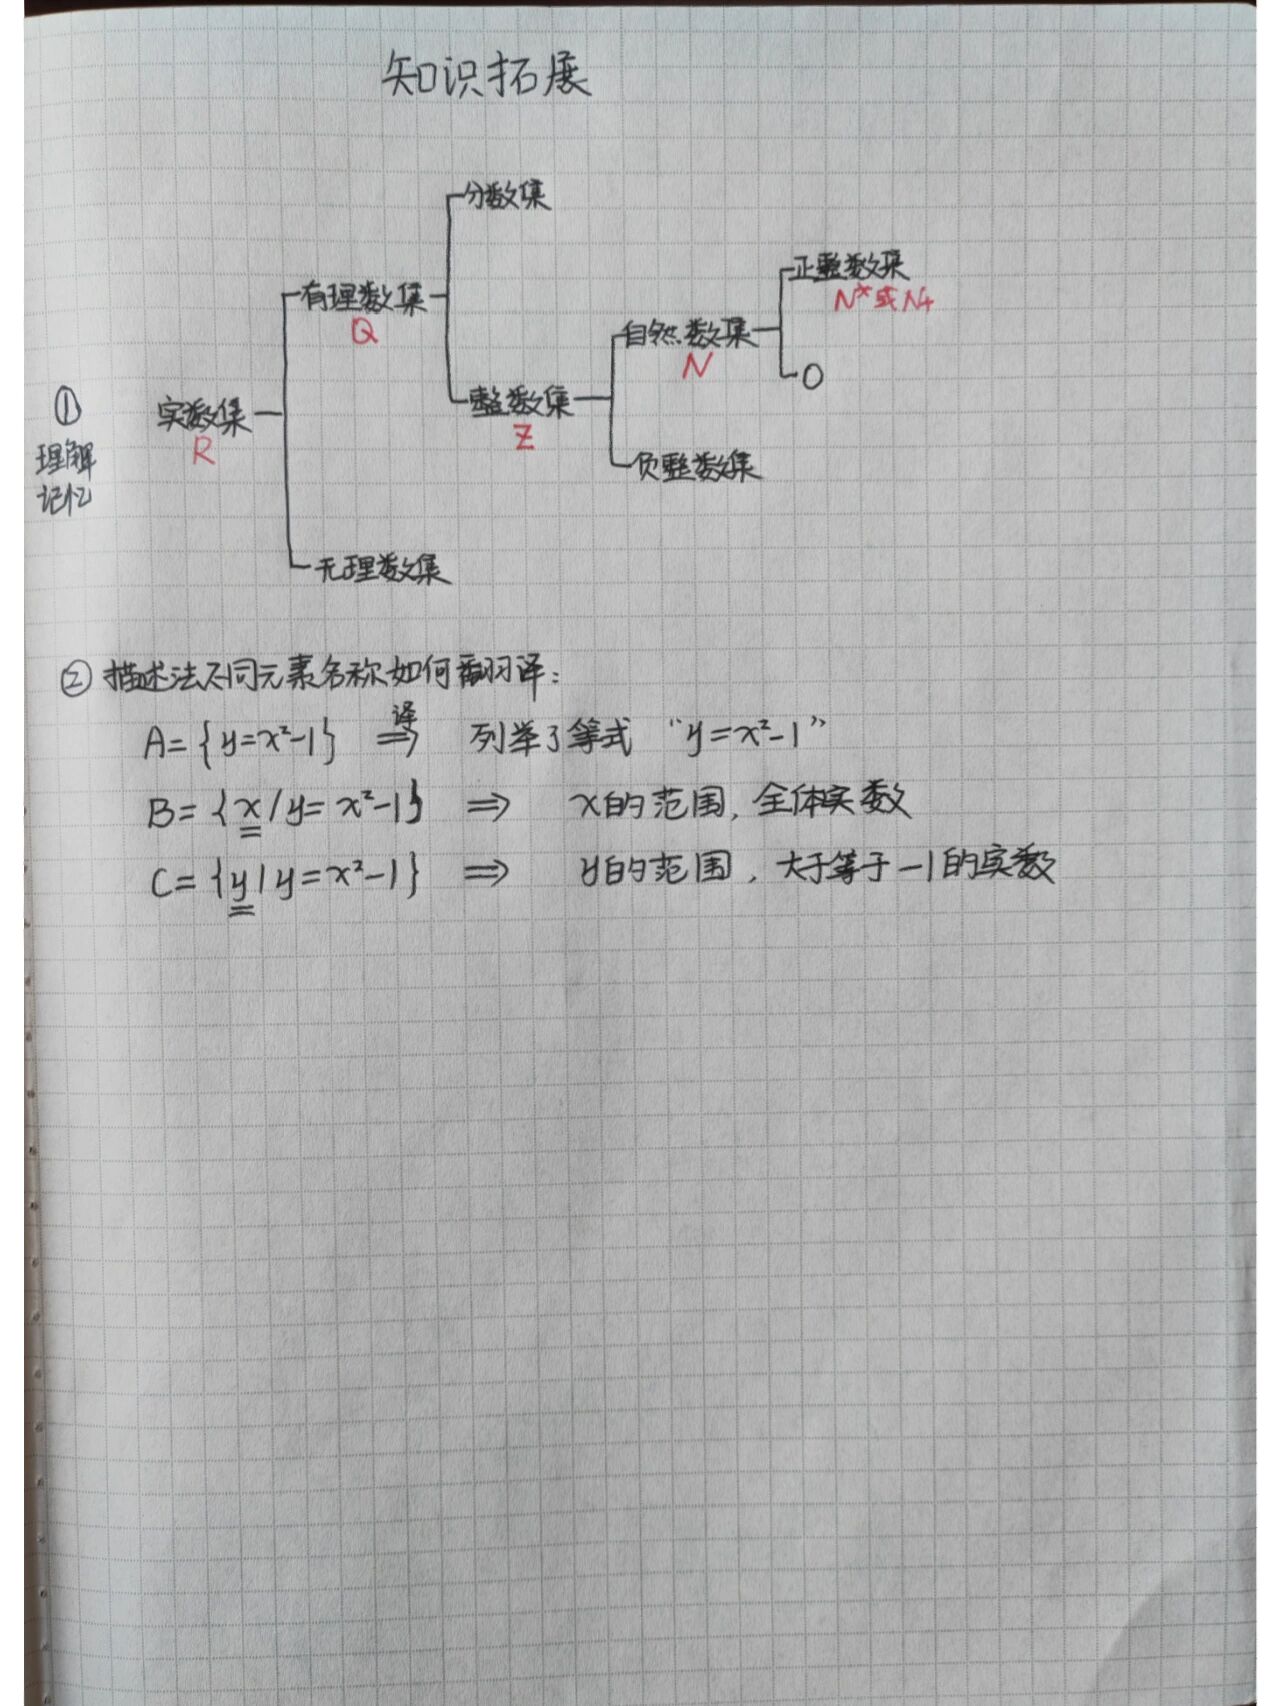 知识拓展
分数集
正整数集
有理数集
N*或N+
Q
自然数集
N
0
①
整数集
实数集
Z
R
理解
记忆
负整数集
无理数集
② 描述法不同元素名称如何翻译：
A={y=x²-1} 译⇒ 列举了等式 “y=x²-1”
B={x/y=x²-1} ⇒ x的范围，全体实数
C={y|y=x²-1} ⇒ y的范围，大于等于-1的实数